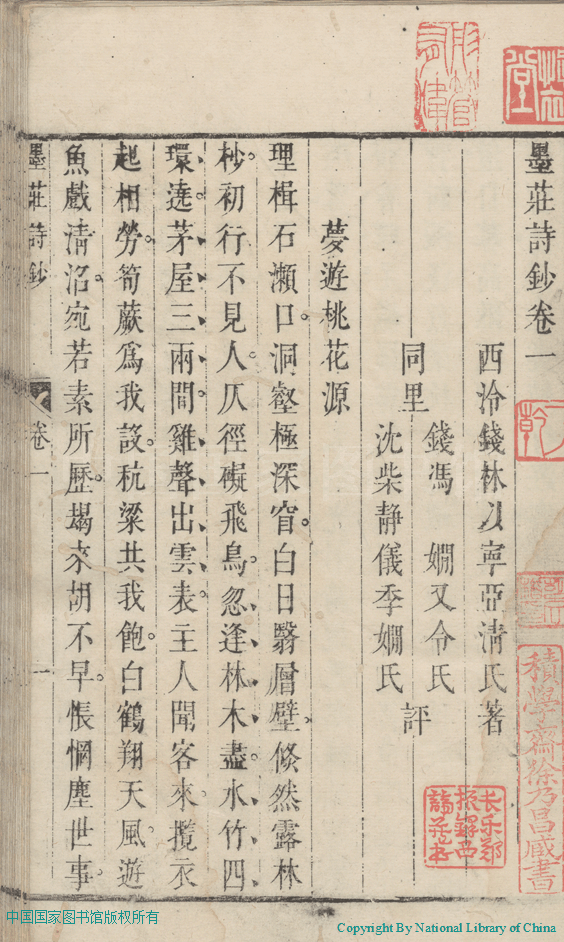 墨莊詩鈔卷一
西泠錢林以寧亞清氏著
錢馮　嫺又令氏
同里　評
沈柴静儀季嫺氏
夢遊桃花源
理楫石瀨口。洞壑極深窅。白日翳層壁。倐然露林
杪。初行不見人。仄徑礙飛鳥。忽逢林木盡。水竹四
環遶。茅屋三兩間。雞聲出雲表。主人聞客來。攬衣
起相勞。筍蕨為我設。秔粱共我飽。白鶴翔天風。遊
魚戲清沼。宛若素所歷。朅來胡不早。悵惘塵世事。
墨莊詩鈔
卷一
一
積學齋徐乃昌藏書
长乐郑
振鐸西
諦藏书
中国国家图书馆版权所有
Copyright By National Library of China